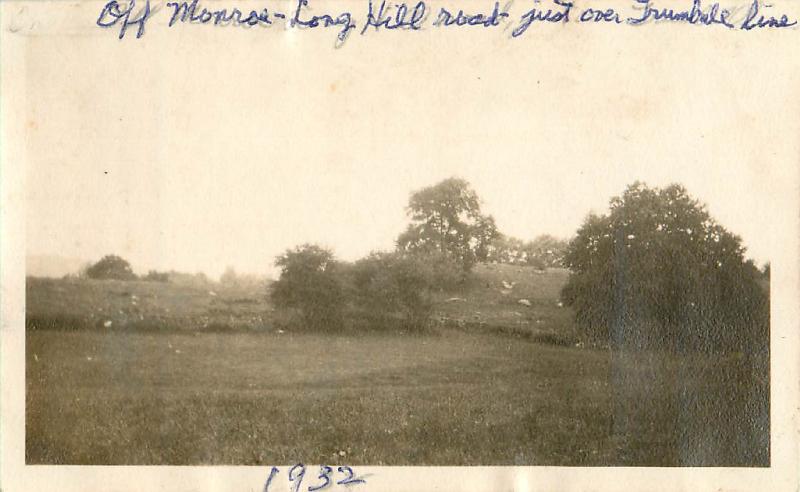 Off Monroe-Long Hill road just over Trumbule line
1932